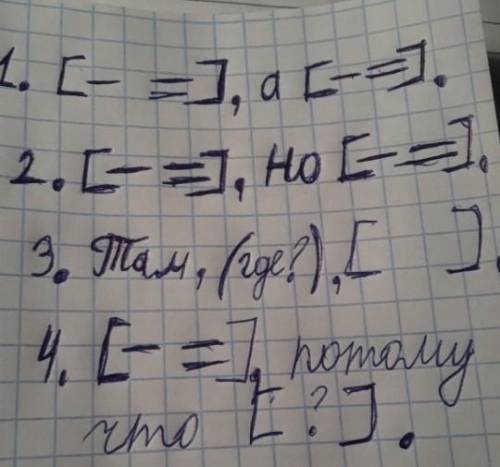 1. [– =], а [– =].
2. [– =], но [– =].
3. Там, (где?), [ ].
4. [– =], потому
что [ ? ].